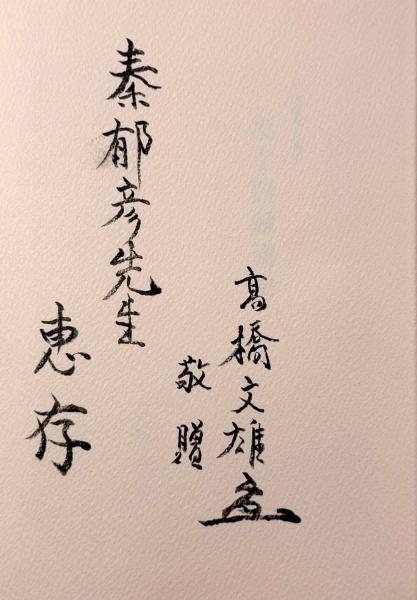 秦郁彦先生
惠存
高橋文雄
敬贈